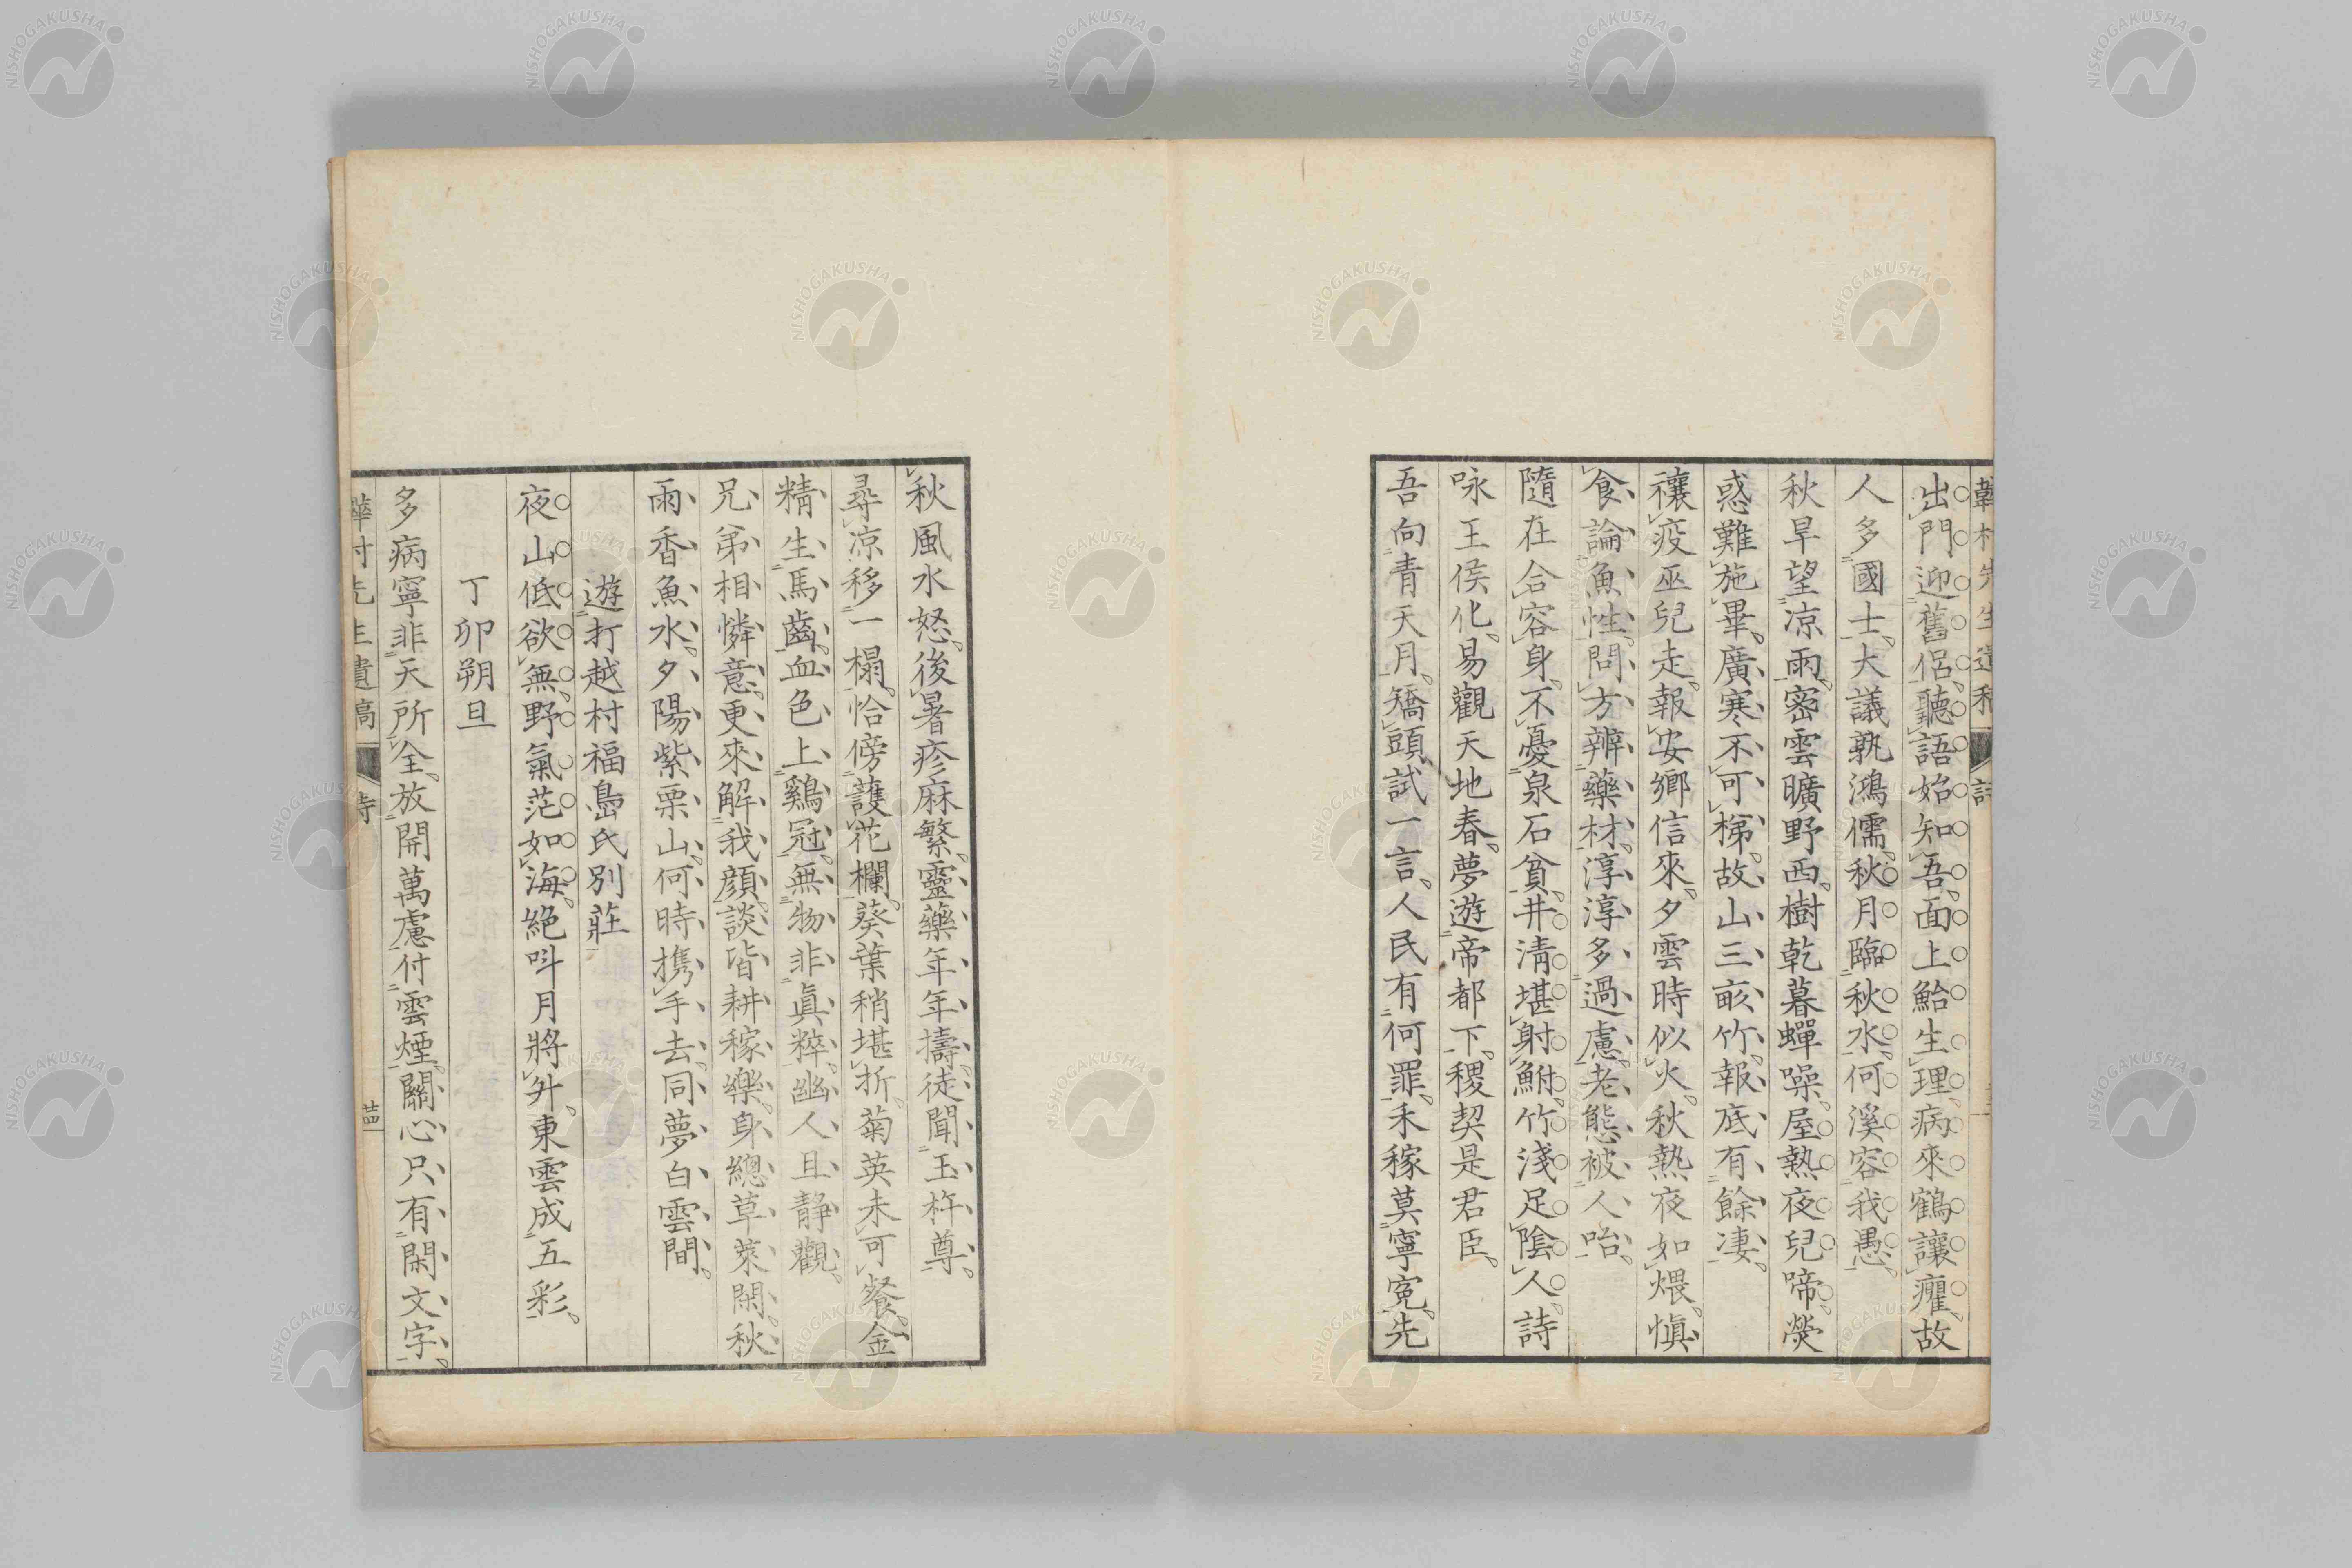 韡村先生遺稿 詩
出門迎舊侶聽語始知吾面上鮐生理病來鶴讓癯故
人多國士大議孰鴻儒秋月臨秋水何溪容我愚
秋早望凉雨密雲曠野西樹乾暮蟬噪屋熱夜兒啼熒
惑難施畢廣寒不可梯故山三畝竹報底有餘凄
禳疫巫兒走報安鄉信來夕雲時似火秋熱夜如煨愼
食論魚性問方辨藥材淳淳多過慮老態被人咍
隨在合容身不憂泉石貧井淸堪射鮒竹淺足陰人詩
咏王侯化易觀天地春夢遊帝都下稷契是君臣
吾向靑天月矯頭試一言人民有何罪禾稼莫寧寃先
秋風水怒後暑疹麻繁靈藥年年擣徒聞玉杵尊
尋凉移一榻恰傍護花欄葵葉稍堪折菊英未可餐金
精生馬齒血色上鷄冠無物非眞粹幽人且靜觀
兄弟相憐意更來解我顔談皆耕稼樂身總草萊閑秋
雨香魚水夕陽紫栗山何時携手去同夢白雲間
遊打越村福島氏別莊
夜山低欲無野氣茫如海絕叫月將升東雲成五彩
丁卯朔旦
多病寧非天所全放開萬慮付雲煙關心只有閑文字
韡村先生遺稿 詩